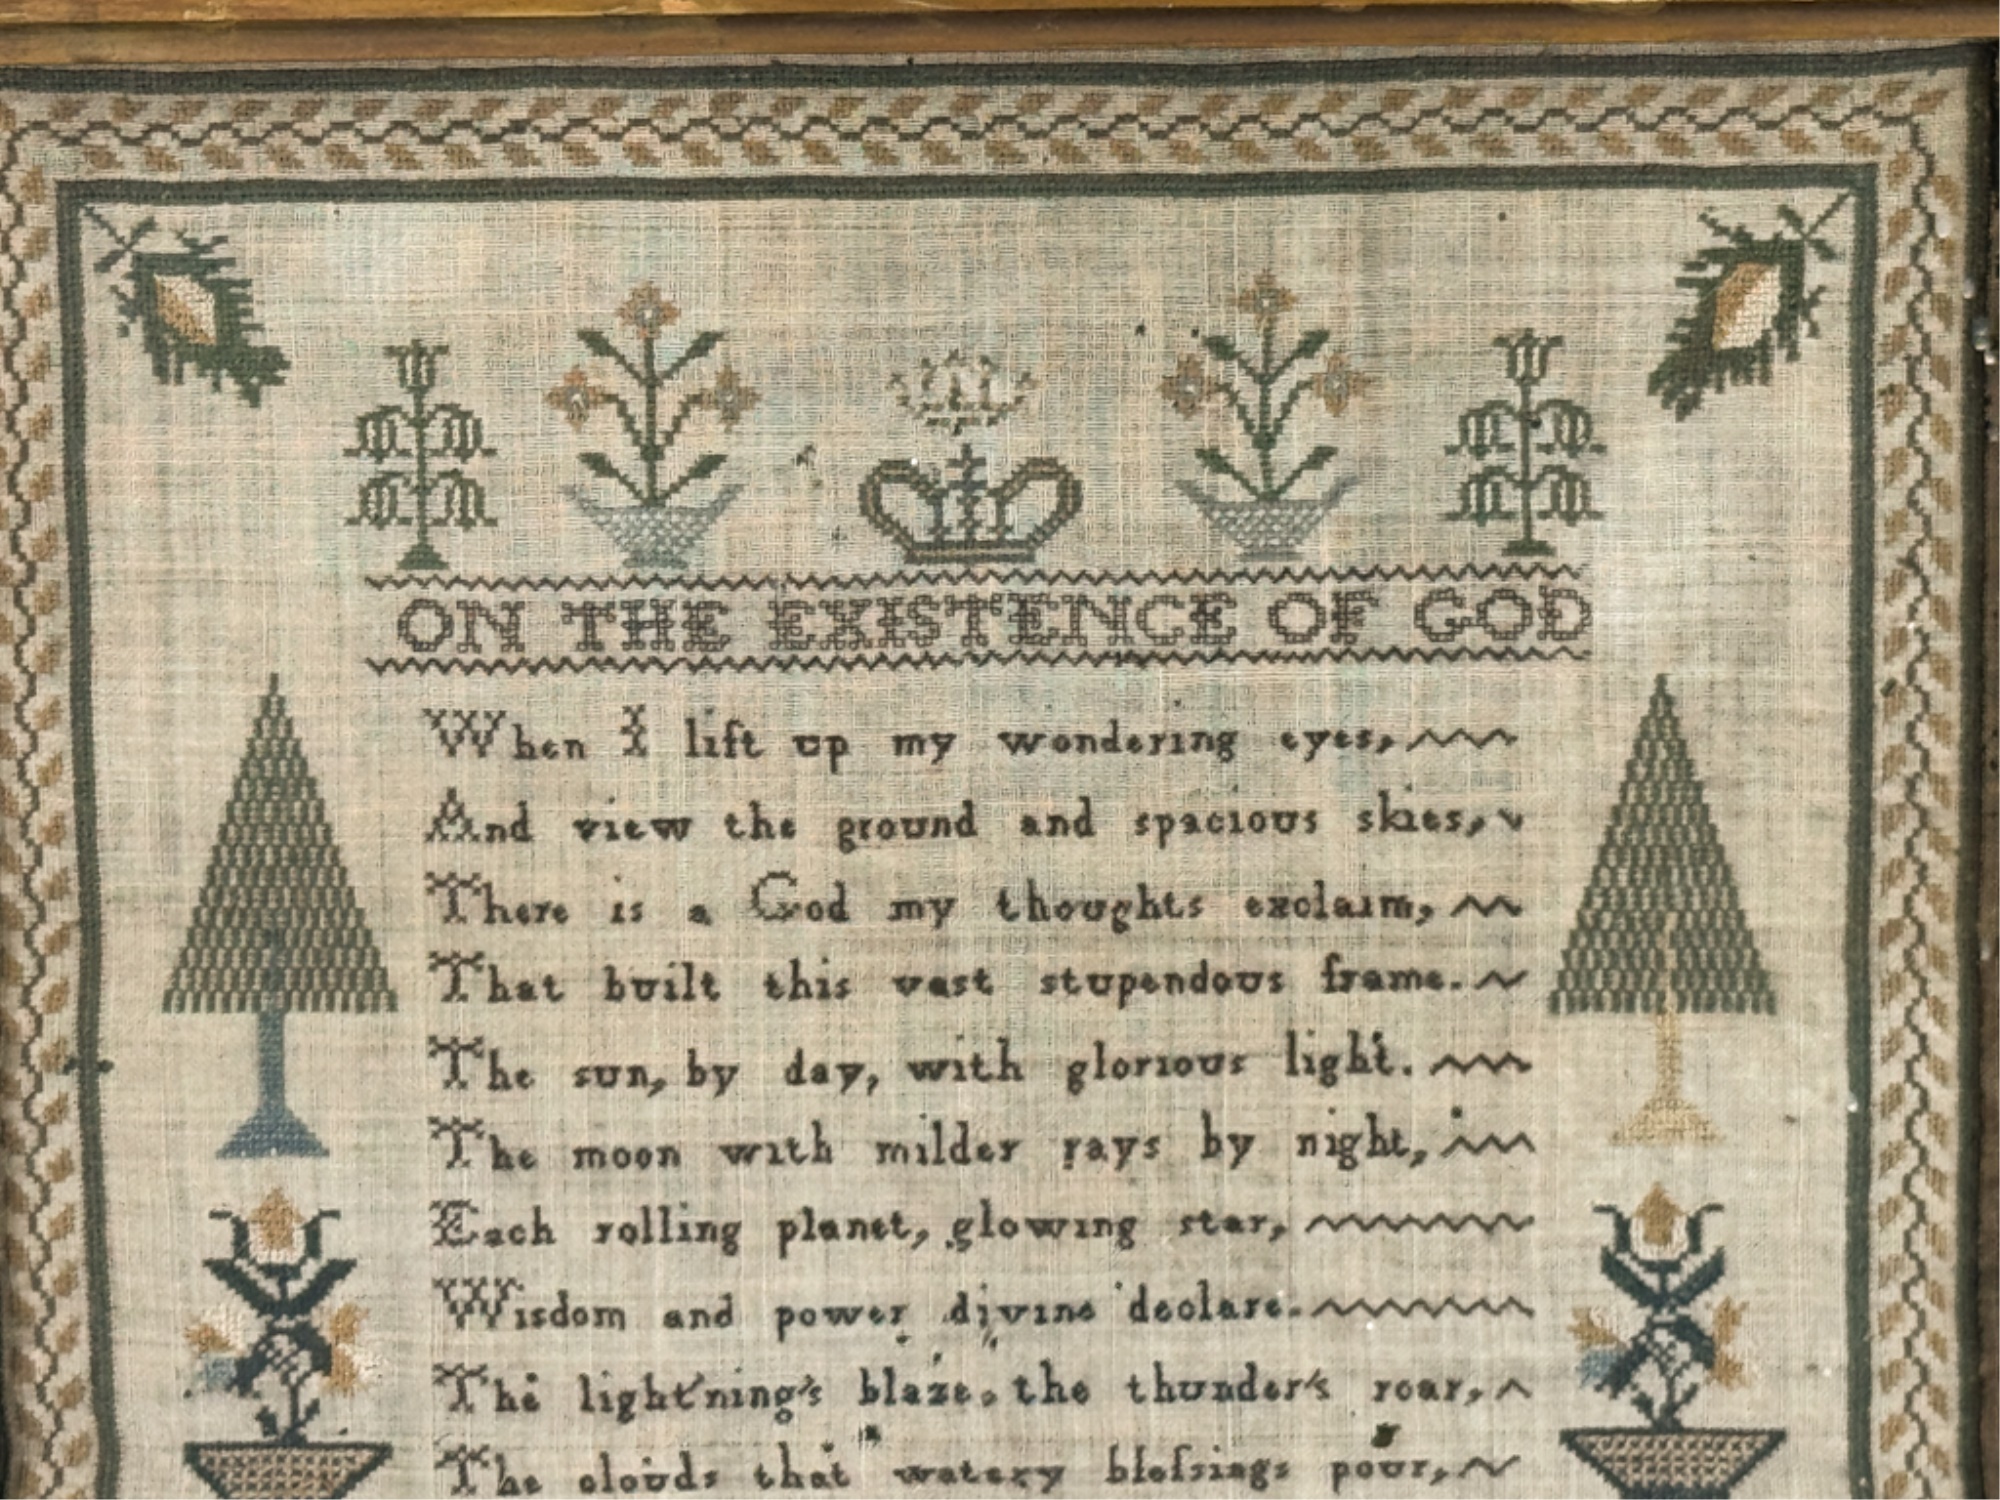 ON THE EXISTENCE OF GOD
When I lift up my wondering eyes,
And view the ground and spacious skies,
There is a God my thoughts exclaim,
That built this vast stupendous frame.
The sun, by day, with glorious light.
The moon with milder rays by night,
Each rolling planet, glowing star,
Wisdom and power divine declare.
The light'ning's blaze, the thunder's roar,
The clouds that watery bleſsings pour,